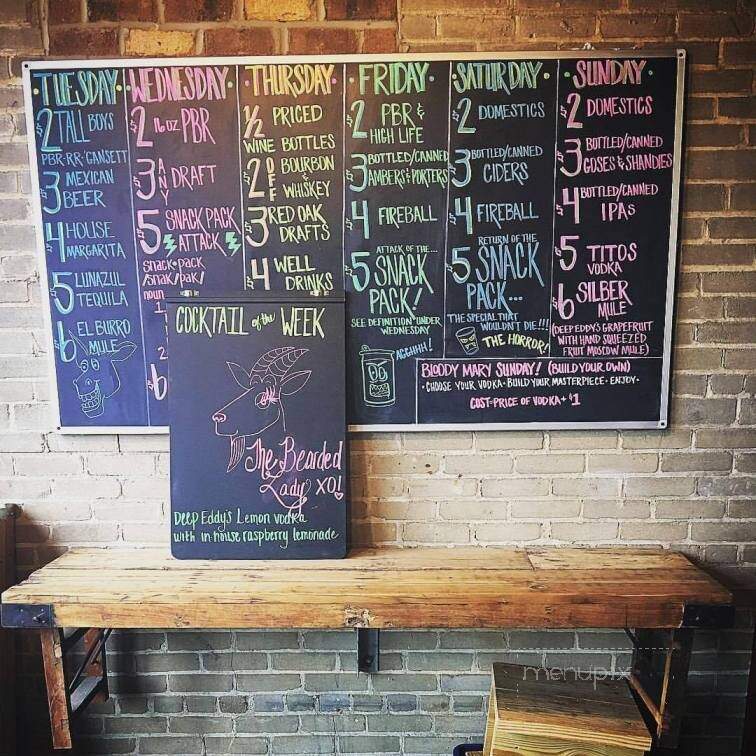 TUESDAY
$2 TALL BOYS
PBR·RR·'GANSETT
$3 MEXICAN
BEER
$4 HOUSE
MARGARITA
$5 LUNAZUL
TEQUILA
$6 EL BURRO
MULE
WEDNESDAY
$2 16 OZ PBR
$3 ANY DRAFT
$5 SNACK PACK
ATTACK
snack•pack
/snak/pak/
noun
1
THURSDAY
1/2 PRICED
WINE BOTTLES
$2 OFF BOURBON
& WHISKEY
$3 RED OAK
DRAFTS
$4 WELL
DRINKS
FRIDAY
$2 PBR &
HIGH LIFE
$3 BOTTLED/CANNED
AMBERS & PORTERS
$4 FIREBALL
ATTACK OF THE...
$5 SNACK
PACK!
SEE DEFINITION UNDER
WEDNESDAY
AGGHHH!
SATURDAY
$2 DOMESTICS
$3 BOTTLED/CANNED
CIDERS
$4 FIREBALL
RETURN OF THE
$5 SNACK
PACK...
THE SPECIAL THAT
WOULDN'T DIE!!!
THE HORROR!
SUNDAY
$2 DOMESTICS
$3 BOTTLED/CANNED
GOSES & SHANDIES
$4 BOTTLED/CANNED
IPAS
$5 TITOS
VODKA
$6 SILBER
MULE
(DEEP EDDY'S GRAPEFRUIT
WITH HAND SQUEEZED
FRUIT MOSCOW MULE)
BLOODY MARY SUNDAY! (BUILD YOUR OWN)
• CHOOSE YOUR VODKA • BUILD YOUR MASTERPIECE • ENJOY •
COST = PRICE OF VODKA + $1
COCKTAIL of the WEEK
The Bearded
Lady XO!
Deep Eddy's Lemon vodka
with in house raspberry lemonade
menupix